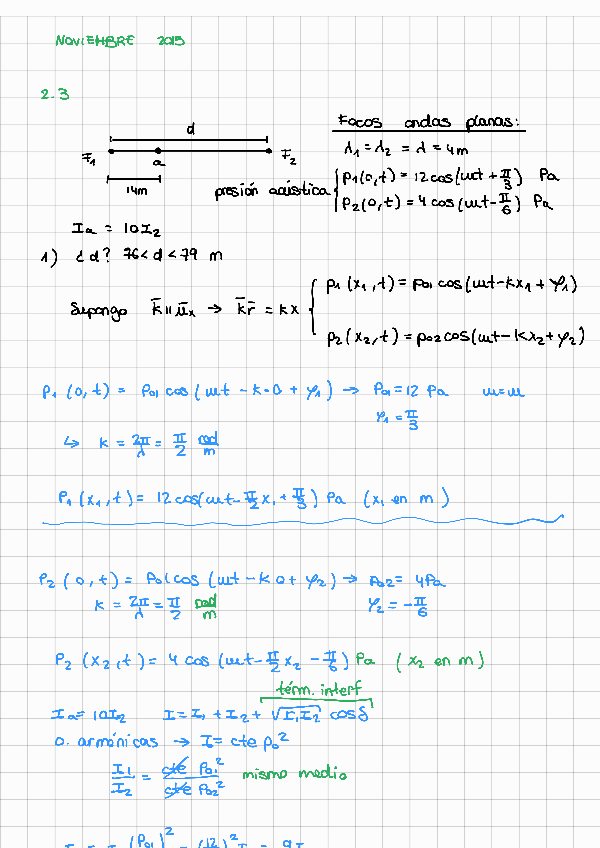 NOVIEMBRE 2019
2.3
d
F₁ a F₂
14m
Focos ondas planas:
λ₁ = λ₂ = λ = 4m
presión acústica { p₁(0,t) = 12cos(ωt + π/3) Pa
p₂(0,t) = 4 cos(ωt - π/6) Pa
Iₐ = 10I₂
1) ¿d? 76 < d < 79 m
Supongo k̄ ∥ ūₓ → k̄r̄ = kx { p₁(x₁,t) = p₀₁ cos(ωt - kx₁ + φ₁)
p₂(x₂,t) = p₀₂ cos(ωt - kx₂ + φ₂)
P₁(0,t) = P₀₁ cos(ωt - k·0 + φ₁) → P₀₁ = 12 Pa ω = ω
φ₁ = π/3
↳ k = 2π/λ = π/2 rad/m
P₁(x₁,t) = 12cos(ωt - π/2 x₁ + π/3) Pa (x₁ en m)
P₂(0,t) = P₀₁cos(ωt - k0 + φ₂) → p₀₂ = 4Pa
k = 2π/λ = π/2 rad/m φ₂ = -π/6
P₂(x₂,t) = 4 cos(ωt - π/2 x₂ - π/6) Pa (x₂ en m)
térm. interf
Iₐ = 10I₂ I = I₁ + I₂ + √I₁I₂ cosδ
o. armónicas → I = cte p₀²
I₁/I₂ = cte P₀₁²/cte P₀₂² mismo medio